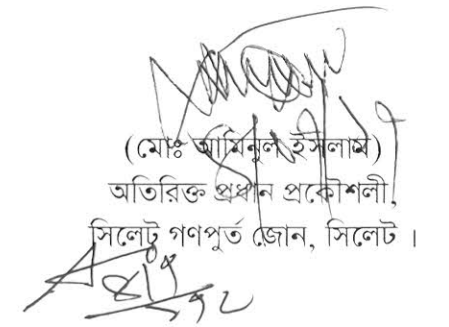 (মোঃ আমিনুল ইসলাম)
অতিরিক্ত প্রধান প্রকৌশলী,
সিলেট গণপূর্ত জোন, সিলেট ।